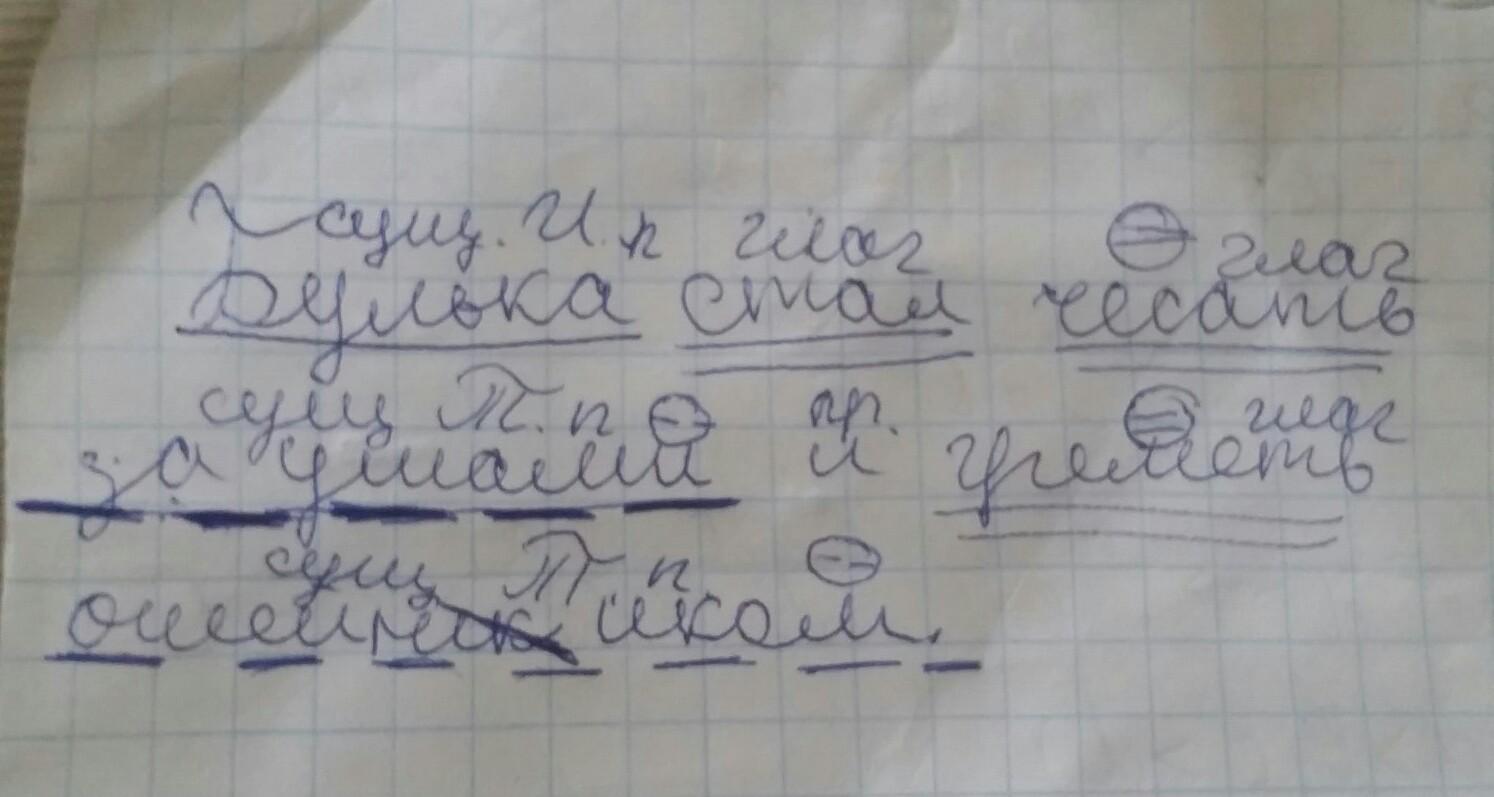 сущ. И. п глаг ⊖ глаг
Булька стал чесать
сущ Т. п ⊖ пр. ⊖ глаг
за ушами и греметь
сущ Т п ⊖
ошейник иком.